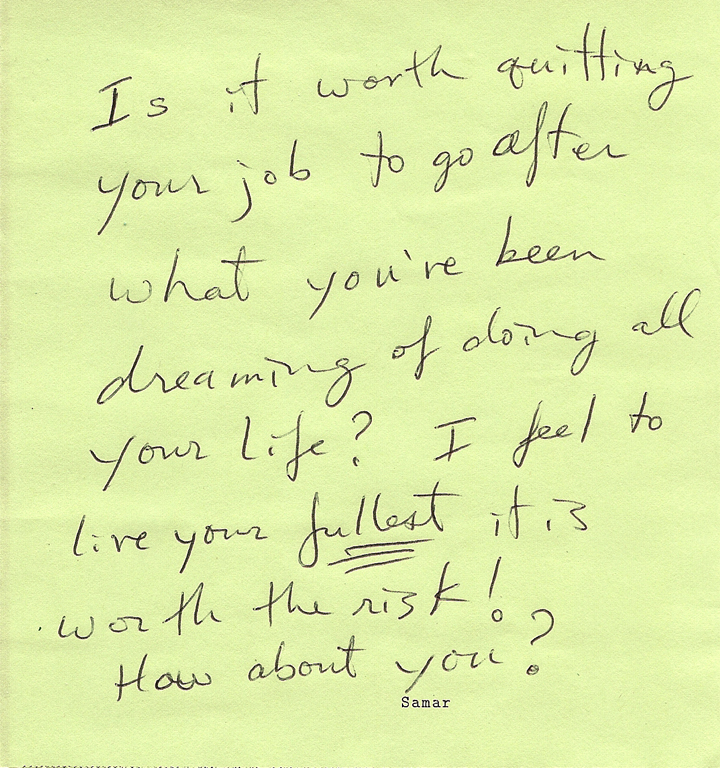 Is it worth quitting
your job to go after
what you've been
dreaming of doing all
your life? I feel to
live your fullest it is
worth the risk!
How about you?
Samar